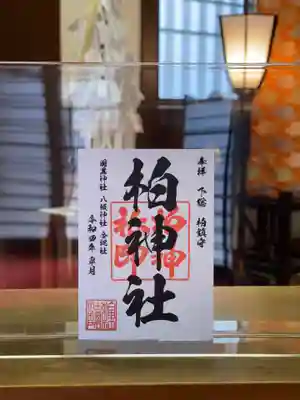 奉拝 下総 柏鎮守
柏神社
羽黒神社 八坂神社 合祀社
令和四年 皐月